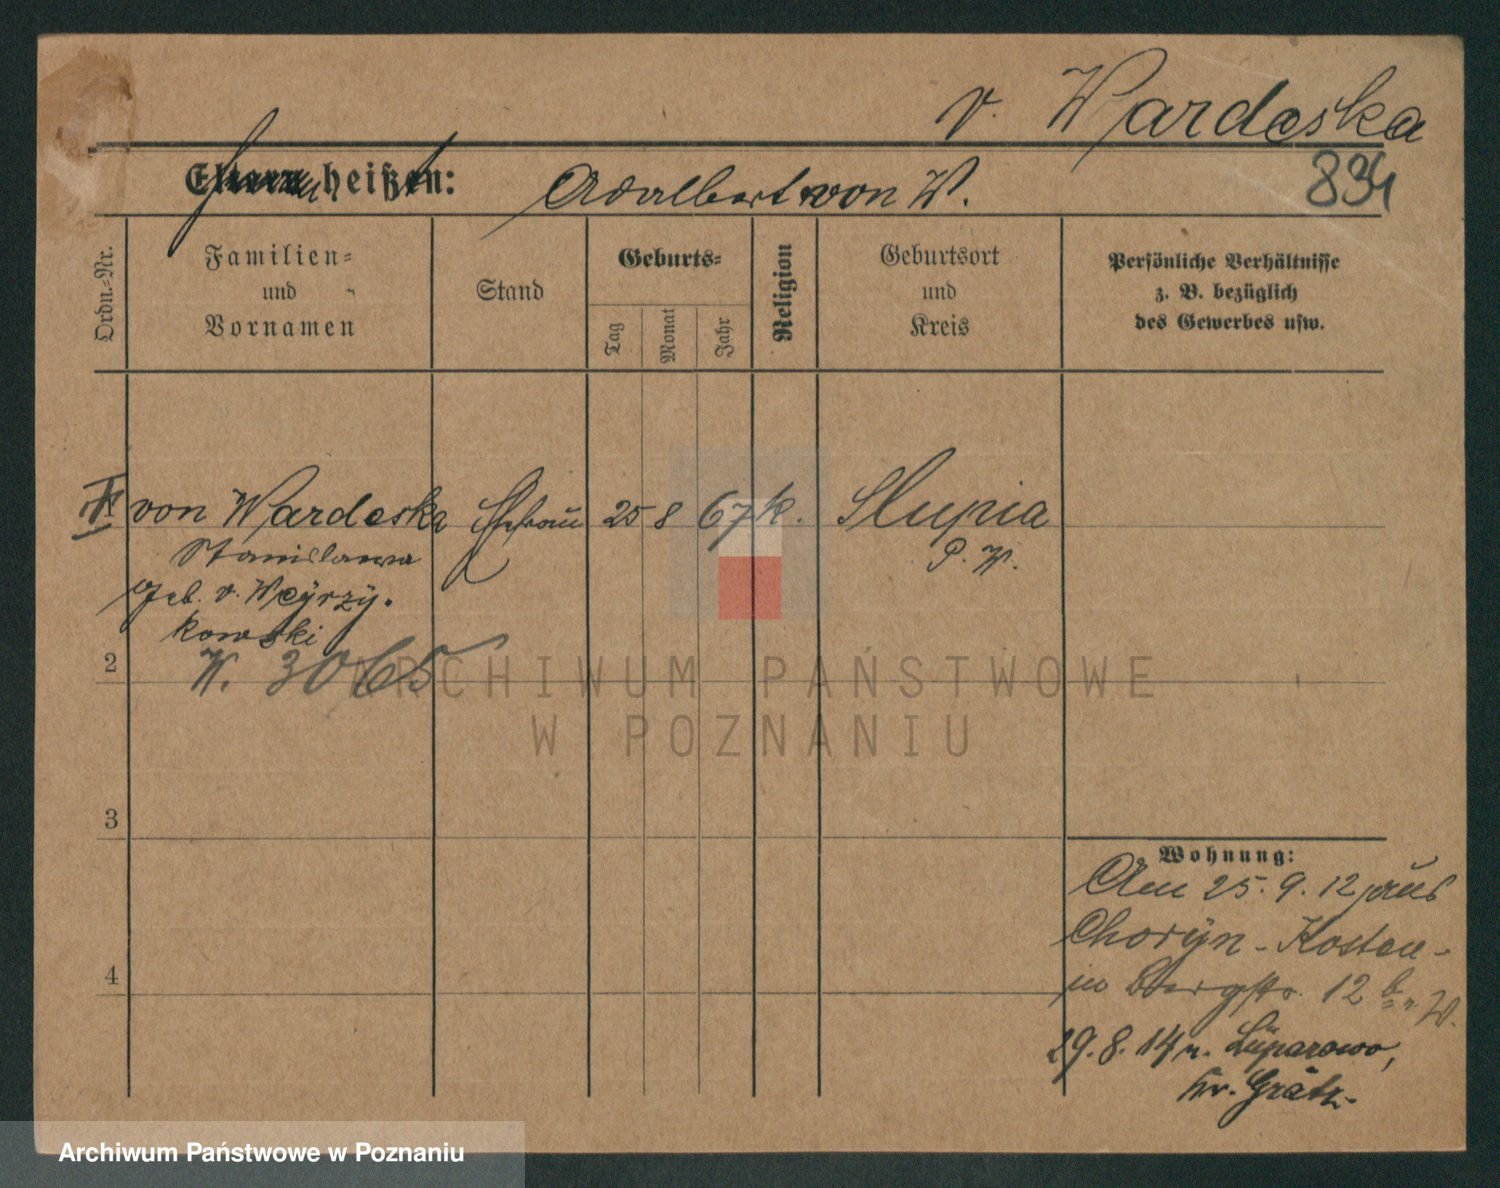 v. Wardeska
heißt: Adalbert von W.
834
Ordn.-Nr.
Familien-
und
Vornamen
Stand
Geburts-
Tag
Monat
Jahr
Religion
Geburtsort
und
Kreis
Persönliche Verhältnisse
z. B. bezüglich
des Gewerbes usw.
von Wardeska Ehefrau 25 8 67 k. Slupia
Stanislawa P. W.
geb. v. Weÿrzÿ-
kowski
W. 3065
2
3
4
Wohnung:
Am 25. 9. 12 aus
Chorÿn - Kosten -
in Bergstr. 12 b
29. 8. 14 n. Luparowo,
Kr. Grätz.
ARCHIWUM PAŃSTWOWE
W POZNANIU
Archiwum Państwowe w Poznaniu